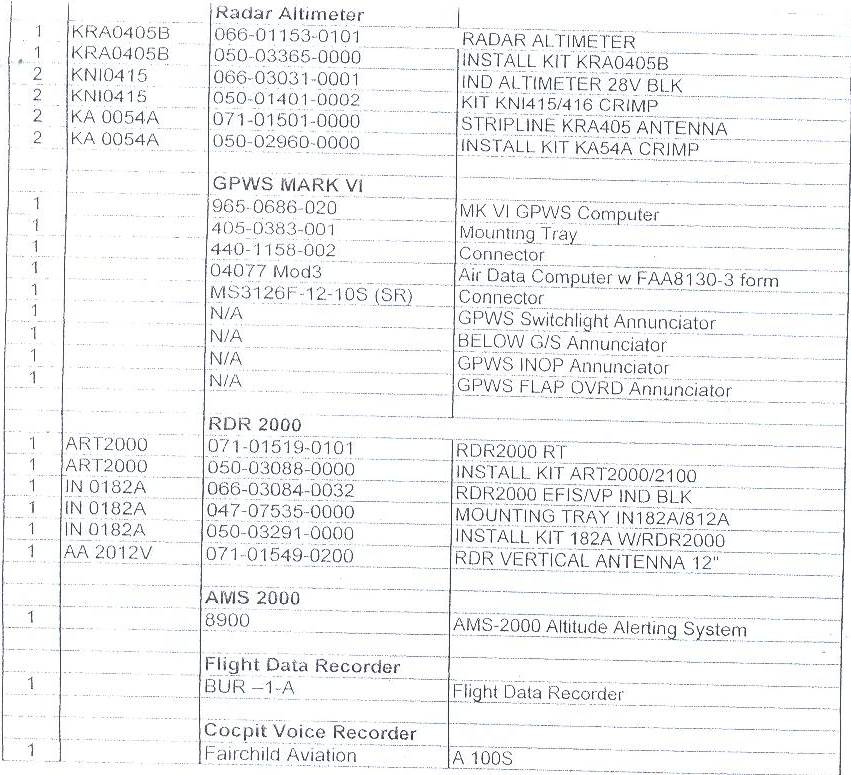 Radar Altimeter
1 KRA0405B 066-01153-0101 RADAR ALTIMETER
1 KRA0405B 050-03365-0000 INSTALL KIT KRA0405B
2 KNI0415 066-03031-0001 IND ALTIMETER 28V BLK
2 KNI0415 050-01401-0002 KIT KNI415/416 CRIMP
2 KA 0054A 071-01501-0000 STRIPLINE KRA405 ANTENNA
2 KA 0054A 050-02960-0000 INSTALL KIT KA54A CRIMP
GPWS MARK VI
1 965-0686-020 MK VI GPWS Computer
1 405-0383-001 Mounting Tray
1 440-1158-002 Connector
1 04077 Mod3 Air Data Computer w FAA8130-3 form
1 MS3126F-12-10S (SR) Connector
1 N/A GPWS Switchlight Annunciator
1 N/A BELOW G/S Annunciator
1 N/A GPWS INOP Annunciator
1 N/A GPWS FLAP OVRD Annunciator
RDR 2000
1 ART2000 071-01519-0101 RDR2000 RT
1 ART2000 050-03088-0000 INSTALL KIT ART2000/2100
1 IN 0182A 066-03084-0032 RDR2000 EFIS/VP IND BLK
1 IN 0182A 047-07535-0000 MOUNTING TRAY IN182A/812A
1 IN 0182A 050-03291-0000 INSTALL KIT 182A W/RDR2000
1 AA 2012V 071-01549-0200 RDR VERTICAL ANTENNA 12"
AMS 2000
1 8900 AMS-2000 Altitude Alerting System
Flight Data Recorder
1 BUR –1-A Flight Data Recorder
Cocpit Voice Recorder
1 Fairchild Aviation A 100S